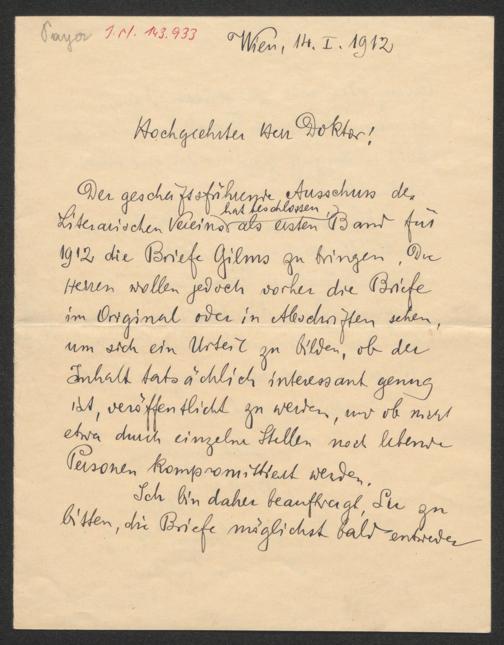 Payer I.N. 143.933
Wien, 14. I. 1912
Hochgeehrter Herr Doktor!
Der geschäftsführende Ausschuss des
hat beschlossen
Literarischen Vereins als ersten Band für
1912 die Briefe Gilms zu bringen. Die
Herren wollen jedoch vorher die Briefe
im Original oder in Abschriften sehen,
um sich ein Urteil zu bilden, ob der
Inhalt tatsächlich interessant genug
ist, veröffentlicht zu werden, und ob nicht
etwa durch einzelne Stellen noch lebende
Personen kompromittiert werden.
Ich bin daher beauftragt, Sie zu
bitten, die Briefe möglichst bald entweder